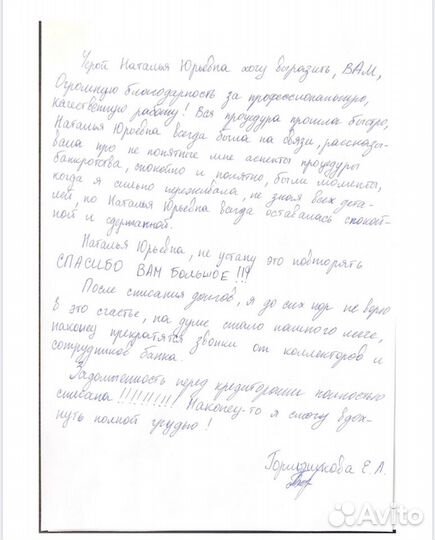 Герой Наталья Юрьевна хочу выразить, ВАМ,
Огромную благодарность за профессиональную,
качественную работу! Вся процедура прошла быстро,
Наталья Юровна всегда была на связи, рассказы-
вала про не понятные мне аспекты процедуры
банкротства, спокойно и понятно, были моменты,
когда я сильно переживала, не зная всех дета-
лей, но Наталья Юрьевна всегда оставалась спокой-
ной и сдержанной.
Наталья Юрьевна, не устану это повторять
СПАСИБО ВАМ БОЛЬШОЕ !!!
После списания долгов, я до сих пор не верю
в это счастье, на душе стало намного легче,
наконец прекратятся звонки от коллекторов и
сотрудников банка.
Задолженность перед кредиторами полностью
списана !!!!!!!!!! Наконец-то я смогу вдох-
нуть полной грудью!
Е.А.
Avito